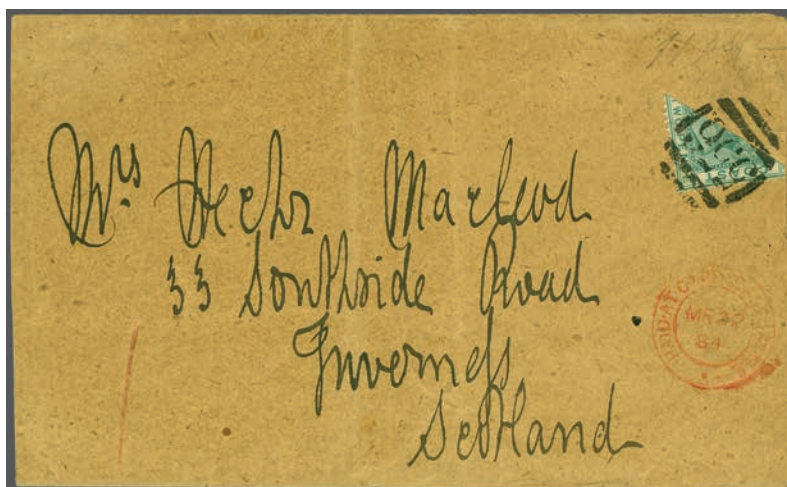 Mrs Hector Macleod
33 Southside Road
Inverness
Scotland
PAID AT
MR 22
84